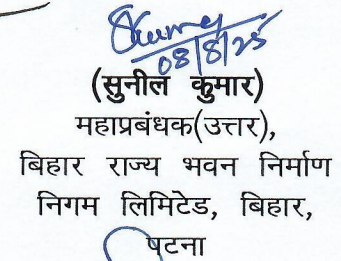 SKumar
08/8/25
(सुनील कुमार)
महाप्रबंधक(उत्तर),
बिहार राज्य भवन निर्माण
निगम लिमिटेड, बिहार,
पटना